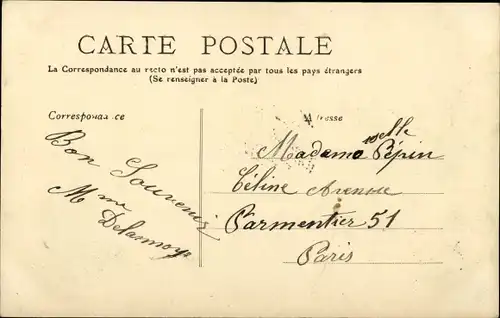 CARTE POSTALE
La Correspondance au recto n'est pas acceptée par tous les pays étrangers
(Se renseigner à la Poste)
Correspondance
Adresse
Bon Souvenir
Mme
Delannoy
Mademoiselle Pépin
Céline Avenue
Parmentier 51
Paris